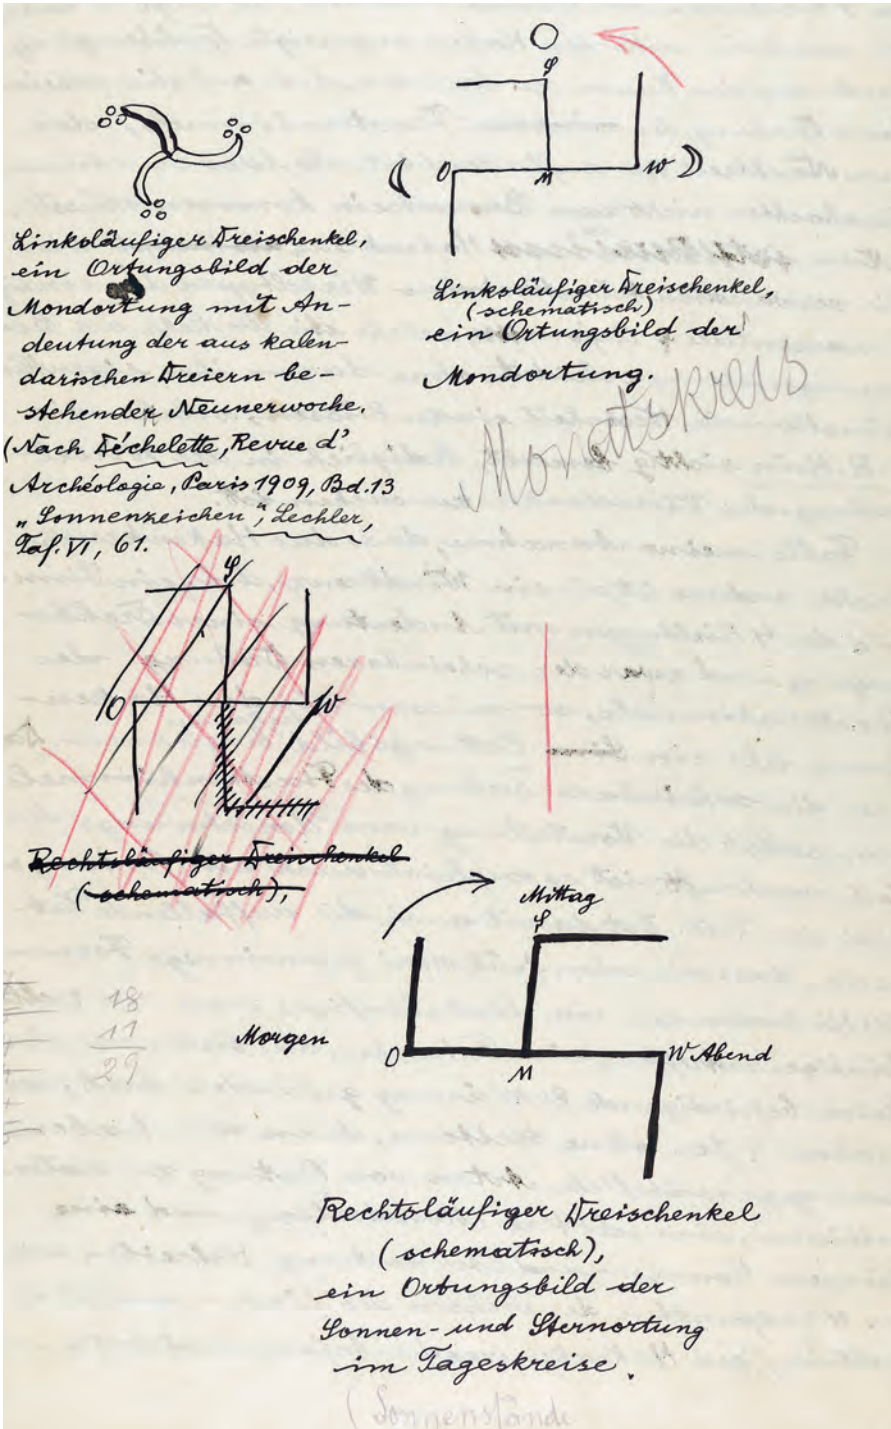 S
O
M
W
Linksläufiger Dreischenkel,
ein Ortungsbild der
Mondortung mit An-
deutung der aus kalen-
darischen Dreiern be-
stehender Neunerwoche.
(Nach Déchelette, Revue d'
Archéologie, Paris 1909, Bd. 13
„Sonnenzeichen", Lechler,
Taf. VI, 61.
Linksläufiger Dreischenkel,
(schematisch)
ein Ortungsbild der
Mondortung.
Monatskreis
S
O
W
Rechtsläufiger Dreischenkel
(schematisch),
18
11
29
Mittag
S
Morgen
O
M
W Abend
Rechtsläufiger Dreischenkel
(schematisch),
ein Ortungsbild der
Sonnen- und Sternortung
im Tageskreise.
(Sonnenstände